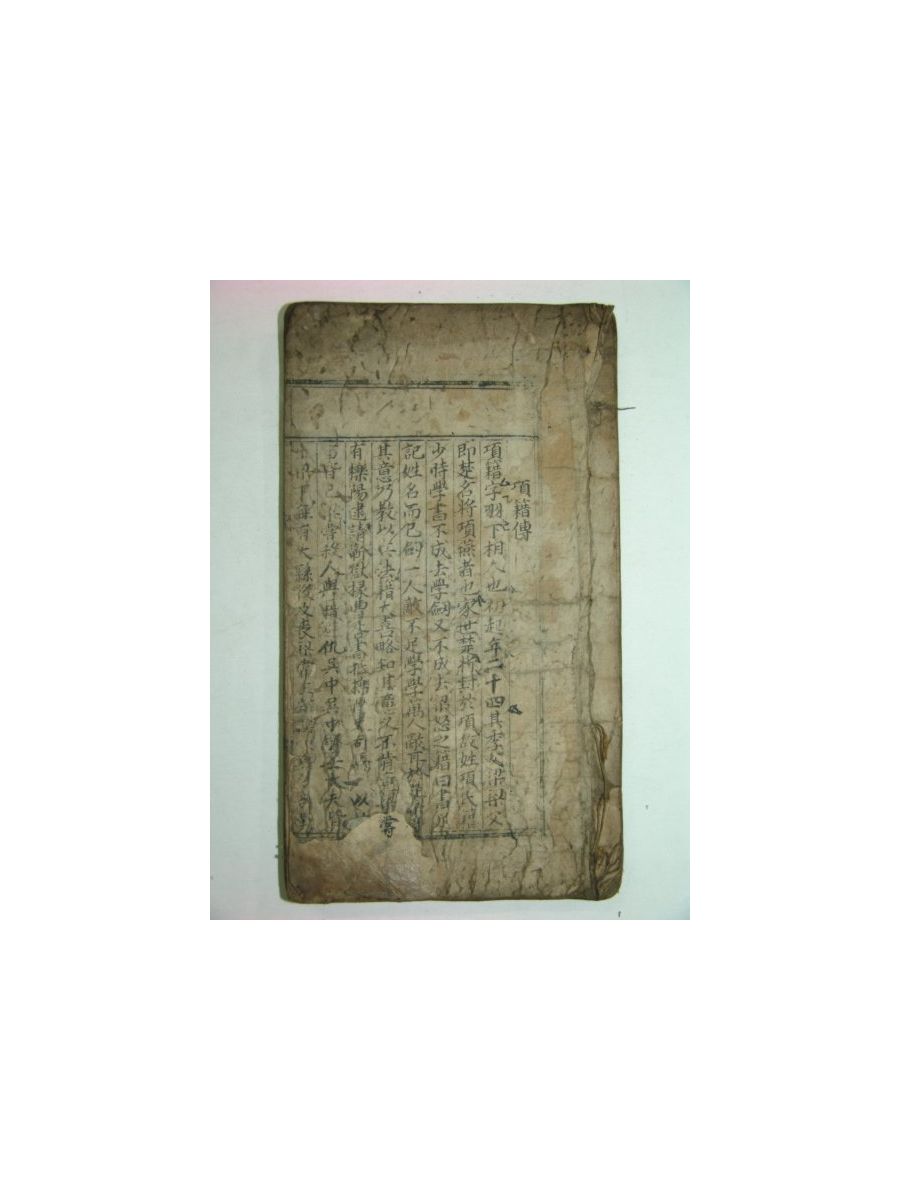 項籍傳
項籍字羽下相人也初起年二十四其季父梁梁父
即楚名將項燕者也家世楚將封於項故姓項氏籍
少時學書不成去學劒又不成去梁怒之籍曰書足
記姓名而已劒一人敵不足學學萬人敵耳於是
其意乃敎以兵法籍大喜略知其意又不肯
有櫟陽逮請蘄獄掾曹咎書抵櫟陽 司馬 以
皆已 梁嘗殺人與籍 仇吳中吳中 士大夫皆
出 下 有大繇役及喪梁常